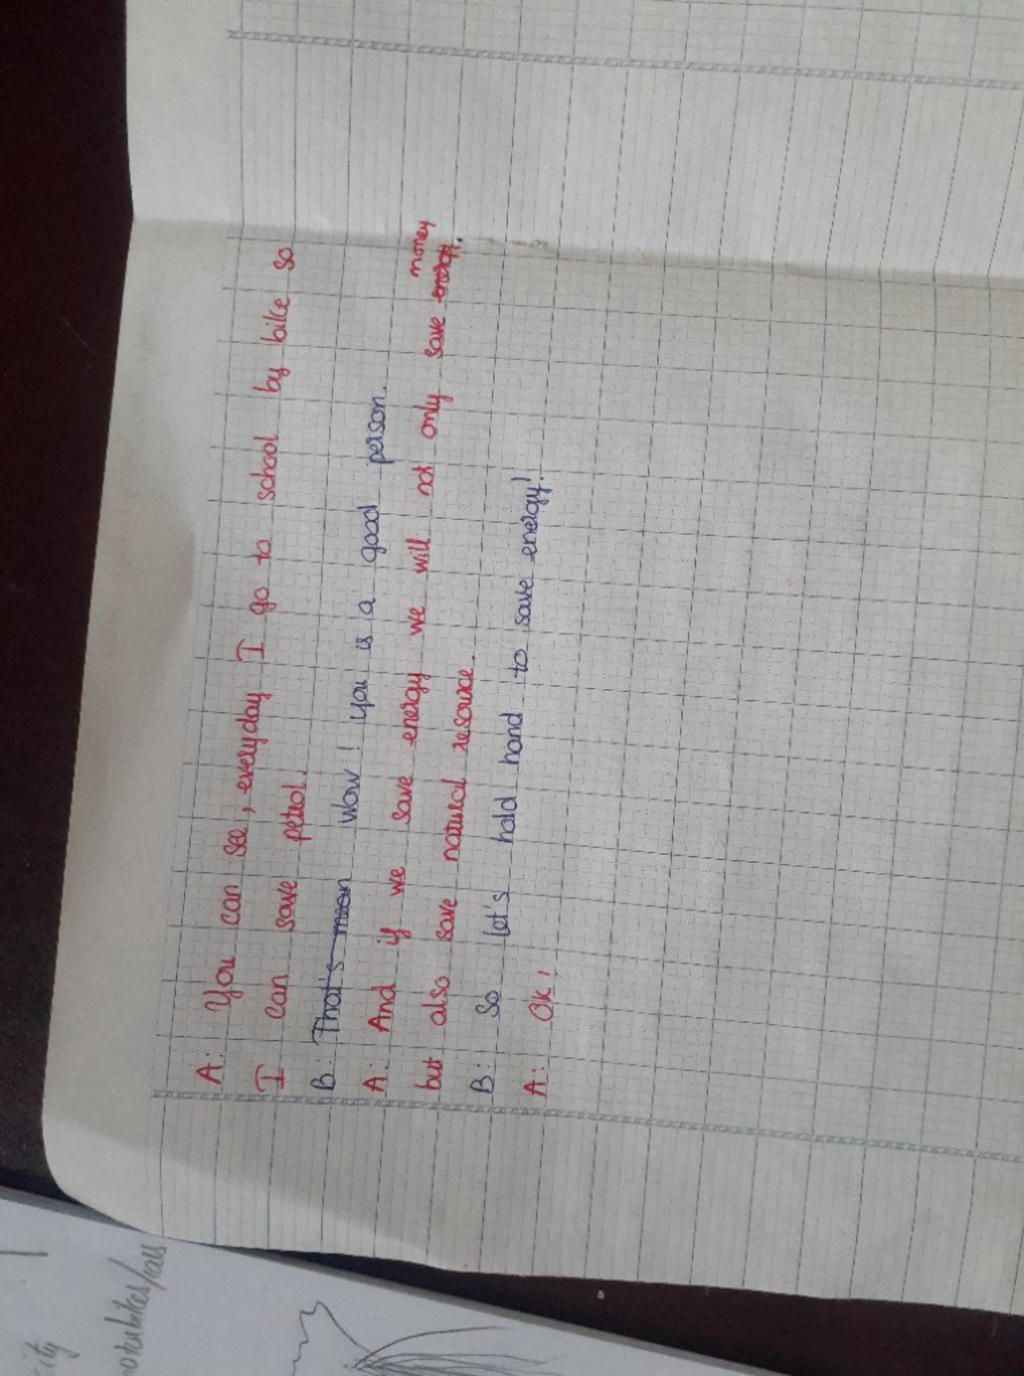 A: You can see, everyday I go to school by bike so
I can save petrol.
B: That's mean Wow! you is a good person.
A: And if we save energy we will not only save energy. money
but also save natural resource.
B: So let's hold hand to save energy!
A: Ok!
ity
motorbikes/cars